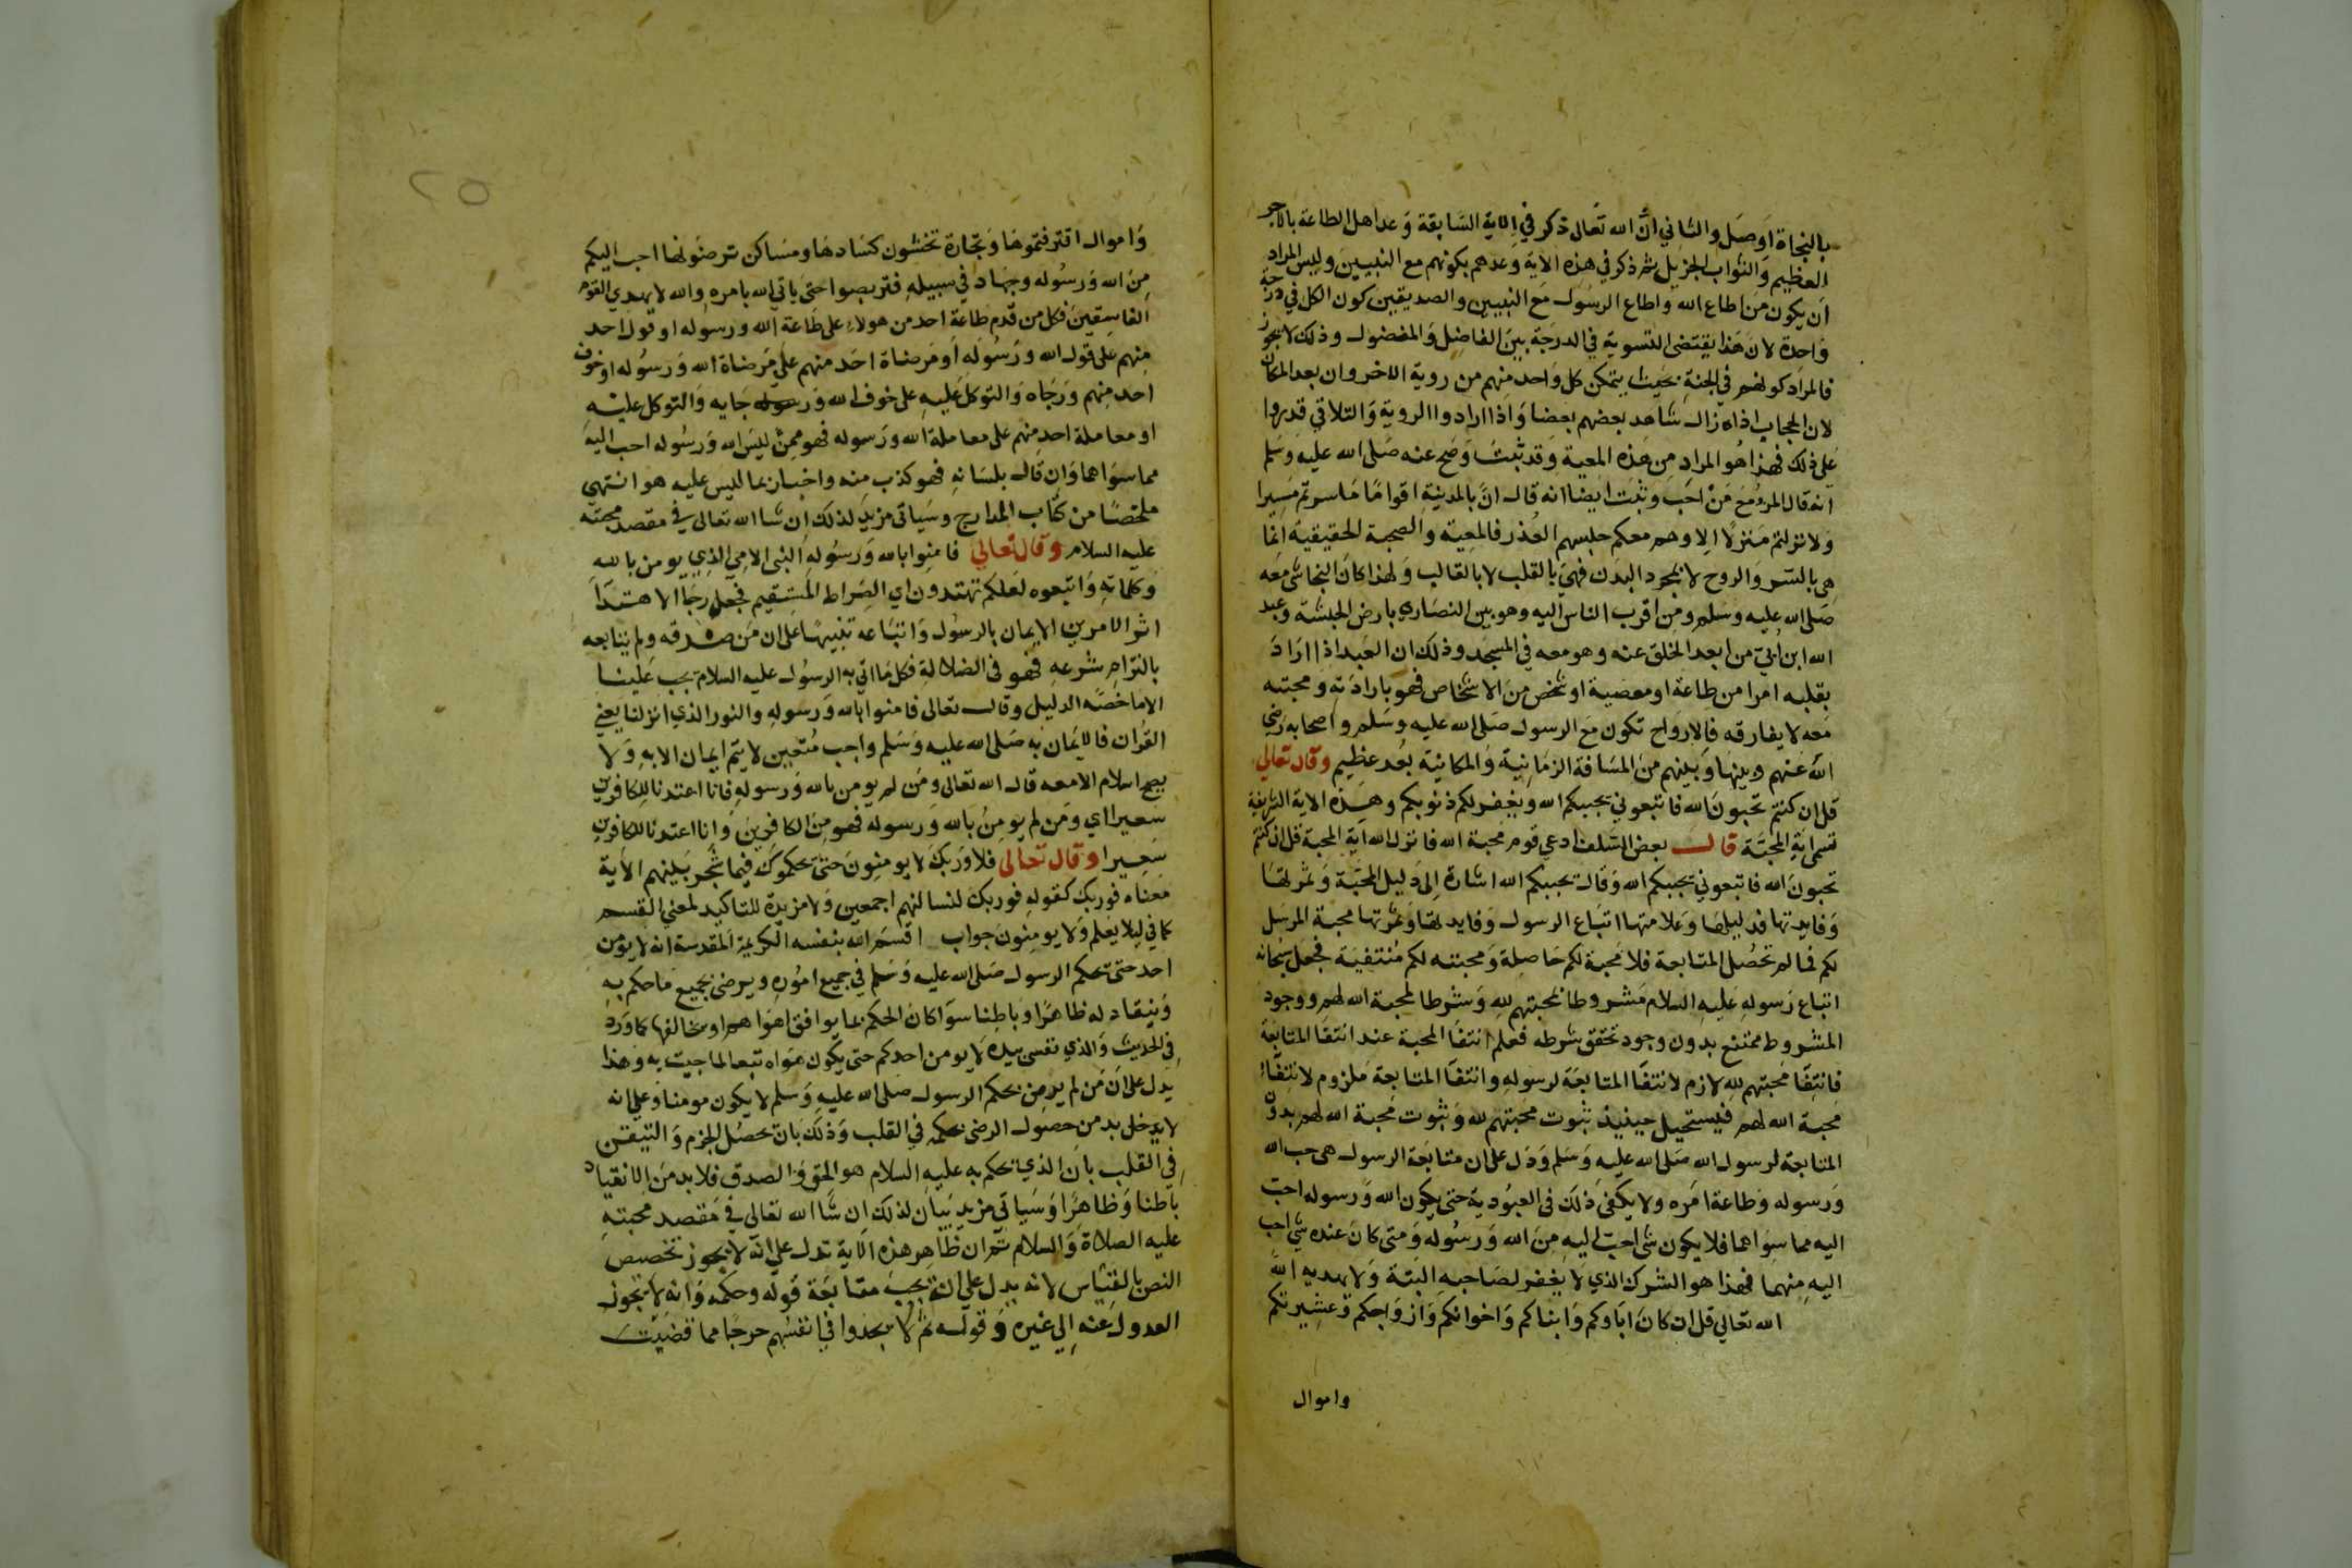 بالنجاة اوصل والثاني ان الله تعالى ذكر في الاية السابقة وعد اهل الطاعة بالاجر
العظيم والثواب الجزيل ثم ذكر في هذه الاية وعدهم بكونهم مع النبيين وليس المراد
ان يكون من اطاع الله واطاع الرسول مع النبيين والصديقين كون الكل في درجة
واحدة لان هذا يقتضى التسوية في الدرجة بين الفاضل والمفضول وذلك لا يجوز
فالمراد كونهم في الجنة بحيث يتمكن كل واحد منهم من روية الاخر وان بعد المكان
لان الحجاب اذا زال شاهد بعضهم بعضا واذا ارادوا الروية والتلاقي قدروا
على ذلك فهذا هو المراد من هذه المعية وقد ثبت وصح عنه صلى الله عليه وسلم
انه قال المرء مع من احب وثبت ايضا انه قال ان بالمدينة اقواما ما سرتم مسيرا
ولا نزلتم منزلا الا وهم معكم حبسهم العذر فالمعية والصحبة الحقيقية انما
هى بالسر والروح لا بمجرد البدن فهي بالقلب لا بالقالب ولهذا كان النجاشى معه
صلى الله عليه وسلم ومن اقرب الناس اليه وهو بين النصارى بارض الحبشة وعبد
الله ابن ابي من ابعد الخلق عنه وهو معه في المسجد وذلك ان العبد اذا اراد
بقلبه امرا من طاعة او معصية او شخص من الاشخاص فهو بارادته ومحبته
معه لا يفارقه فالارواح تكون مع الرسول صلى الله عليه وسلم واصحابه رضي
الله عنهم وبينها وبينهم من المسافة الزمانية والمكانية بعد عظيم وقال تعالى
قل ان كنتم تحبون الله فاتبعوني يحببكم الله ويغفر لكم ذنوبكم وهذه الاية الشريفة
تسمى اية المحبة قال بعض السلف ادعي قوم محبة الله فانزل الله اية المحبة قل ان كنتم
تحبون الله فاتبعوني يحببكم الله وقال يحببكم الله اشارة الى دليل المحبة وثمرتها
وفايدتها فدليلها وعلامتها اتباع الرسول وفايدتها وثمرتها محبة المرسل
لكم فما لم تحصل المتابعة فلا محبة لكم حاصلة ومحبته لكم منتفية فجعل سبحانه
اتباع رسوله عليه السلام مشروطا بمحبتهم لله وشرطا لمحبة الله لهم ووجود
المشروط ممتنع بدون وجود تحقق شرطه فعلم انتفا المحبة عند انتفا المتابعة
فانتفا محبتهم لله لازم لانتفا المتابعة لرسوله وانتفا المتابعة ملزوم لانتفاء
محبة الله لهم فيستحيل حينيذ ثبوت محبتهم لله وثبوت محبة الله لهم بدون
المتابعة لرسول الله صلى الله عليه وسلم ودل على ان متابعة الرسول هى حب الله
ورسوله وطاعة امره ولا يكفى ذلك في العبودية حتى يكون الله ورسوله احب
اليه مما سواهما فلا يكون شى احب اليه من الله ورسوله ومتى كان عنده شي احب
اليه منهما فهذا هو الشرك الذي لا يغفر لصاحبه البتة ولا يهديه الله
الله تعالى قل ان كان اباوكم وابناكم واخوانكم وازواجكم وعشيرتكم
واموال
٢٥
واموال اقترفتموها وتجارة تخشون كسادها ومساكن ترضونها احب اليكم
من الله ورسوله وجهاد في سبيله فتربصوا حتى ياتي الله بامره والله لا يهدي القوم
الفاسقين فكل من قدم طاعة احد من هولاء على طاعة الله ورسوله او قول احد
منهم على قول الله ورسوله او مرضاة احد منهم على مرضاة الله ورسوله او خوف
احد منهم ورجاه والتوكل عليه على خوف الله ورجايه والتوكل عليه
او معاملة احد منهم على معاملة الله ورسوله فهو ممن ليس الله ورسوله احب اليه
مما سواهما وان قال بلسانه فهو كذب منه واخبار بما ليس عليه هو انتهى
ملخصا من كتاب المدارج وسياتى مزيد لذلك ان شا الله تعالى في مقصد محبته
عليه السلام وقال تعالى فامنوا بالله ورسوله النبى الامي الذي يومن بالله
وكلماته واتبعوه لعلكم تهتدون اي الصراط المستقيم فجعل رجا الاهتداء
اثر الامرين الايمان بالرسول واتباعه تنبيها على ان من صدقه ولم يتابعه
بالتزام شرعه فهو في الضلالة فكل ما اتى به الرسول عليه السلام يجب علينا
الا ما خصه الدليل وقال تعالى فامنوا بالله ورسوله والنور الذي انزلنا يعني
القران فالايمان به صلى الله عليه وسلم واجب متعين لا يتم ايمان الا به ولا
يصح اسلام الا معه قال الله تعالى ومن لم يومن بالله ورسوله فانا اعتدنا للكافرين
سعيرا اي ومن لم يومن بالله ورسوله فهو من الكافرين وانا اعتدنا للكافرين
سعيرا وقال تعالى فلا وربك لا يومنون حتى يحكموك فيما شجر بينهم الاية
معناه فوربك كقوله فوربك لنسالنهم اجمعين ولا مزيدة للتاكيد لمعنى القسم
كما في ليلا يعلم ولا يومنون جواب اقسم الله بنفسه الكريمة المقدسة انه لا يومن
احد حتى يحكم الرسول صلى الله عليه وسلم في جميع اموره ويرضى بجميع ما حكم به
وينقاد له ظاهرا وباطنا سوا كان الحكم بما يوافق اهواهم او يخالفها كما ورد
في الحديث والذي نفسى بيده لا يومن احدكم حتى يكون هواه تبعا لما جيت به وهذا
يدل على ان من لم يرض بحكم الرسول صلى الله عليه وسلم لا يكون مومنا وعلى انه
لا بد من حصول الرضى بحكمه في القلب وذلك بان يحصل الجزم والتيقن
في القلب بان الذي يحكم به عليه السلام هو الحق والصدق فلا بد من الانقياد
باطنا وظاهرا وسياتي مزيد بيان لذلك ان شا الله تعالى في مقصد محبته
عليه الصلاة والسلام ثم ان ظاهر هذه الاية تدل على انه لا يجوز تخصيص
النص بالقياس لانه يدل على انه يجب متابعة قوله وحكمه وانه لا يجوز
العدول عنه الى غيره وقوله ثم لا يجدوا في انفسهم حرجا مما قضيت